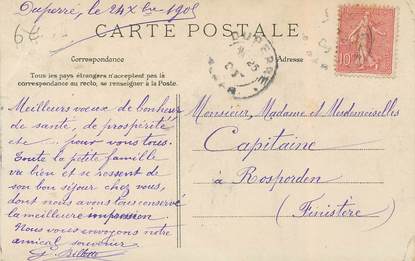 Duperré, le 24 Xbre 1905
64
CARTE POSTALE
Correspondance
Adresse
Tous les pays étrangers n'acceptent pas la
correspondance au recto, se renseigner à la Poste.
DUPERRÉ
10
Meilleurs voeux de bonheur
de santé, de prospérité
etc ... pour vous tous.
Toute la petite famille
va bien et se ressent de
son bon séjour chez vous,
dont nous avons tous conservé
la meilleure impression.
Nous vous envoyons notre
amical souvenir
Monsieur, Madame et Mesdemoiselles
Capitaine
à Rosporden
(Finistère)